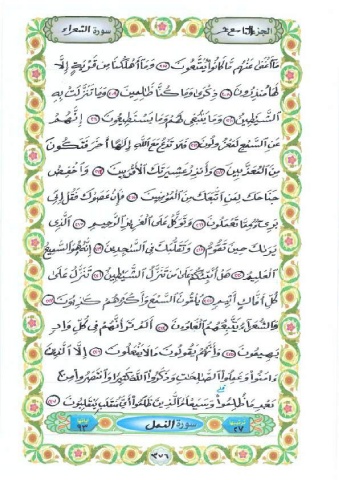 الجزء التاسع عشر سورة الشعراء
مَا أَغْنَىٰ عَنْهُم مَّا كَانُوا يُمَتَّعُونَ ٢٠٧ وَمَا أَهْلَكْنَا مِن قَرْيَةٍ إِلَّا
لَهَا مُنذِرُونَ ٢٠٨ ذِكْرَىٰ وَمَا كُنَّا ظَالِمِينَ ٢٠٩ وَمَا تَنَزَّلَتْ بِهِ
الشَّيَاطِينُ ٢١٠ وَمَا يَنبَغِي لَهُمْ وَمَا يَسْتَطِيعُونَ ٢١١ إِنَّهُمْ
عَنِ السَّمْعِ لَمَعْزُولُونَ ٢١٢ فَلَا تَدْعُ مَعَ اللَّهِ إِلَٰهًا آخَرَ فَتَكُونَ
مِنَ الْمُعَذَّبِينَ ٢١٣ وَأَنذِرْ عَشِيرَتَكَ الْأَقْرَبِينَ ٢١٤ وَاخْفِضْ
جَنَاحَكَ لِمَنِ اتَّبَعَكَ مِنَ الْمُؤْمِنِينَ ٢١٥ فَإِنْ عَصَوْكَ فَقُلْ إِنِّي
بَرِيءٌ مِّمَّا تَعْمَلُونَ ٢١٦ وَتَوَكَّلْ عَلَى الْعَزِيزِ الرَّحِيمِ ٢١٧ الَّذِي
يَرَاكَ حِينَ تَقُومُ ٢١٨ وَتَقَلُّبَكَ فِي السَّاجِدِينَ ٢١٩ إِنَّهُ هُوَ السَّمِيعُ
الْعَلِيمُ ٢٢٠ هَلْ أُنَبِّئُكُمْ عَلَىٰ مَن تَنَزَّلُ الشَّيَاطِينُ ٢٢١ تَنَزَّلُ عَلَىٰ
كُلِّ أَفَّاكٍ أَثِيمٍ ٢٢٢ يُلْقُونَ السَّمْعَ وَأَكْثَرُهُمْ كَاذِبُونَ ٢٢٣
وَالشُّعَرَاءُ يَتَّبِعُهُمُ الْغَاوُونَ ٢٢٤ أَلَمْ تَرَ أَنَّهُمْ فِي كُلِّ وَادٍ
يَهِيمُونَ ٢٢٥ وَأَنَّهُمْ يَقُولُونَ مَا لَا يَفْعَلُونَ ٢٢٦ إِلَّا الَّذِينَ
آمَنُوا وَعَمِلُوا الصَّالِحَاتِ وَذَكَرُوا اللَّهَ كَثِيرًا وَانتَصَرُوا مِن
بَعْدِ مَا ظُلِمُوا وَسَيَعْلَمُ الَّذِينَ ظَلَمُوا أَيَّ مُنقَلَبٍ يَنقَلِبُونَ ٢٢٧
ترتيبها ٢٧ سورة النمل آياتها ٩٣
٣٧٦